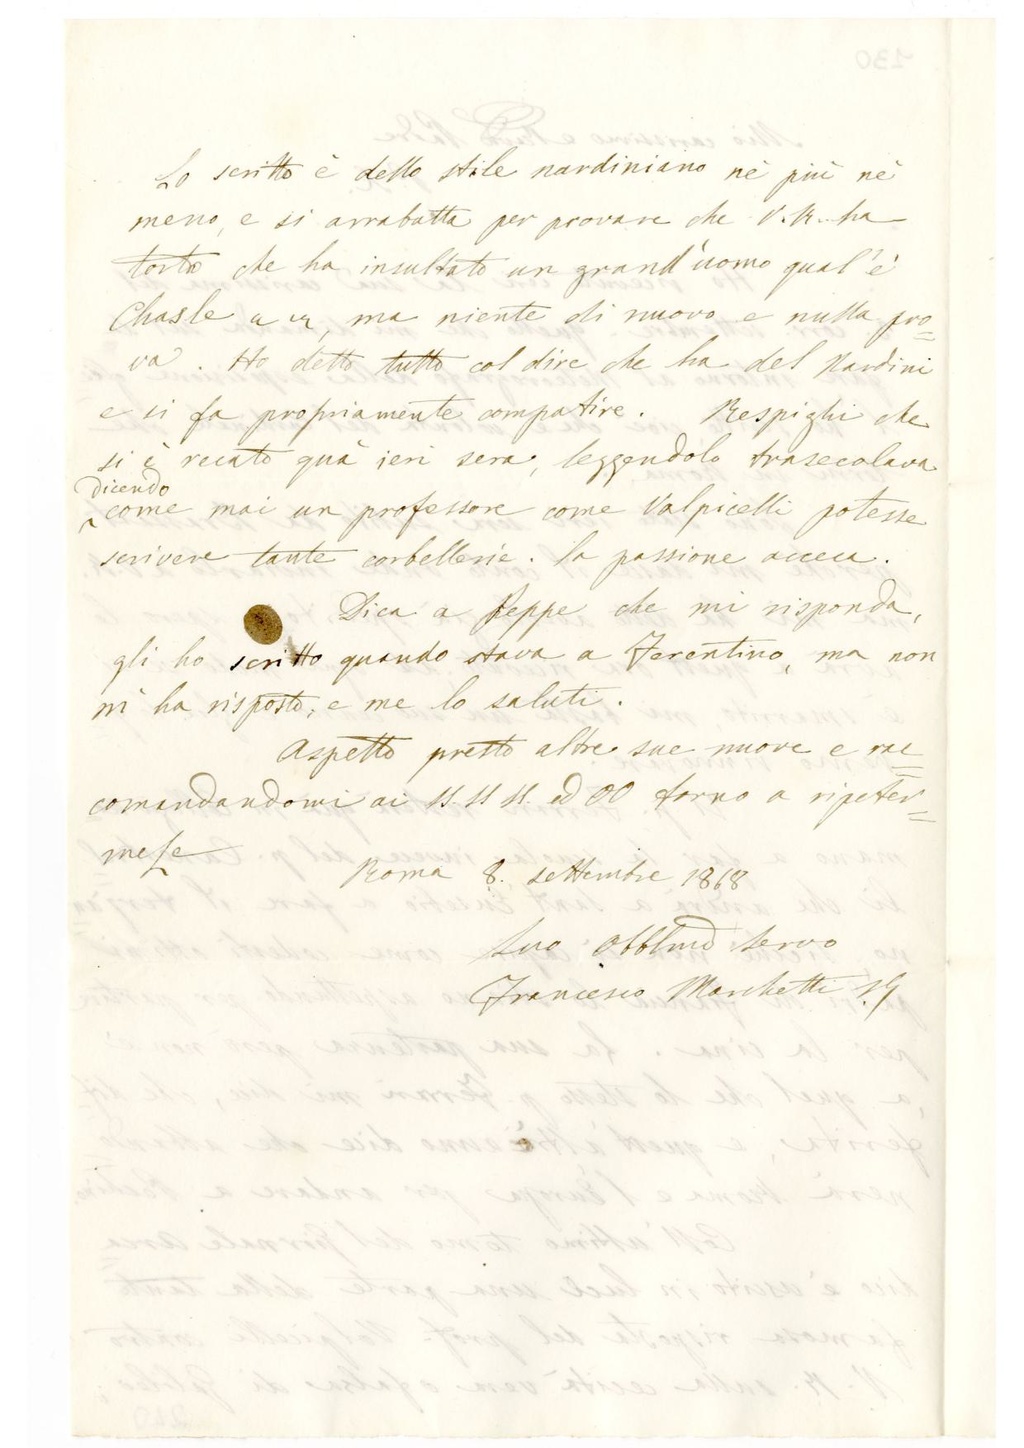 Lo scritto è dello stile nardiniano nè più nè
meno, e si arrabatta per provare che V. R. ha
torto che ha insultato un grand'uomo qual'è
Chasle, ma niente di nuovo e nulla pro=
va. Ho detto tutto col dire che ha del Nardini
e si fa propriamente compatire. Respighi che
si è recato quà ieri sera, leggendolo trasecolava
dicendo
come mai un professore come Valpicelli potesse
scrivere tante corbellerie. La passione acceca.
Dica a Peppe che mi risponda,
gli ho scritto quando stava a Ferentino, ma non
m'ha risposto, e me lo saluti.
Aspetto presto altre sue nuove e rac=
comandandomi ai SS. SS. SS. ed OO torno a ripeter=
mele
Roma 8. settembre 1868
Suo Obblmo Servo
Francesco Marchetti S.J.